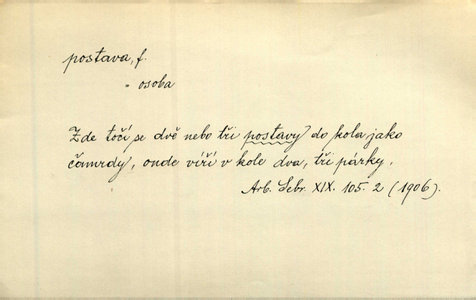 postava, f.
= osoba
Zde točí se dvě nebo tři postavy do kola jako
čamrdy, onde víří v kole dva, tři párky.
Arb. Sebr. XIX. 105. 2 (1906).